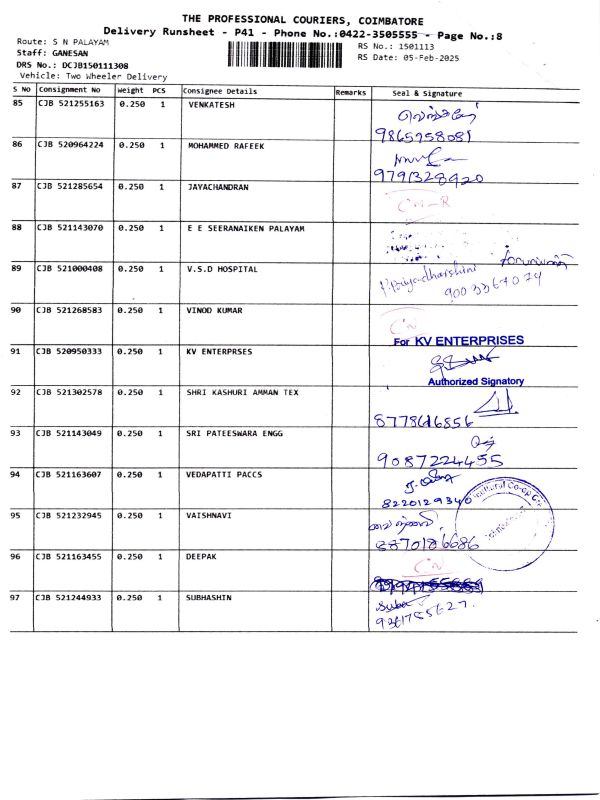 THE PROFESSIONAL COURIERS, COIMBATORE
Delivery Runsheet - P41 - Phone No.:0422-3505555 - Page No.:8
Route: S N PALAYAM
Staff: GANESAN
DRS No.: DCJB150111308
Vehicle: Two Wheeler Delivery
RS No.: 1501113
RS Date: 05-Feb-2025
S No Consignment No Weight PCS Consignee Details Remarks Seal & Signature
85 CJB 521255163 0.250 1 VENKATESH
9865958081
86 CJB 520964224 0.250 1 MOHAMMED RAFEEK
9791328920
87 CJB 521285654 0.250 1 JAYACHANDRAN
88 CJB 521143070 0.250 1 E E SEERANAIKEN PALAYAM
89 CJB 521000408 0.250 1 V.S.D HOSPITAL
P.Priyadharshini
9003367074
90 CJB 521268583 0.250 1 VINOD KUMAR
CN
For KV ENTERPRISES
91 CJB 520950333 0.250 1 KV ENTERPRSES
Authorized Signatory
92 CJB 521302578 0.250 1 SHRI KASHURI AMMAN TEX
8778616856
93 CJB 521143049 0.250 1 SRI PATEESWARA ENGG
9087224455
94 CJB 521163607 0.250 1 VEDAPATTI PACCS
8220129340
95 CJB 521232945 0.250 1 VAISHNAVI
8870186686
96 CJB 521163455 0.250 1 DEEPAK
CN
97 CJB 521244933 0.250 1 SUBHASHIN
Suba